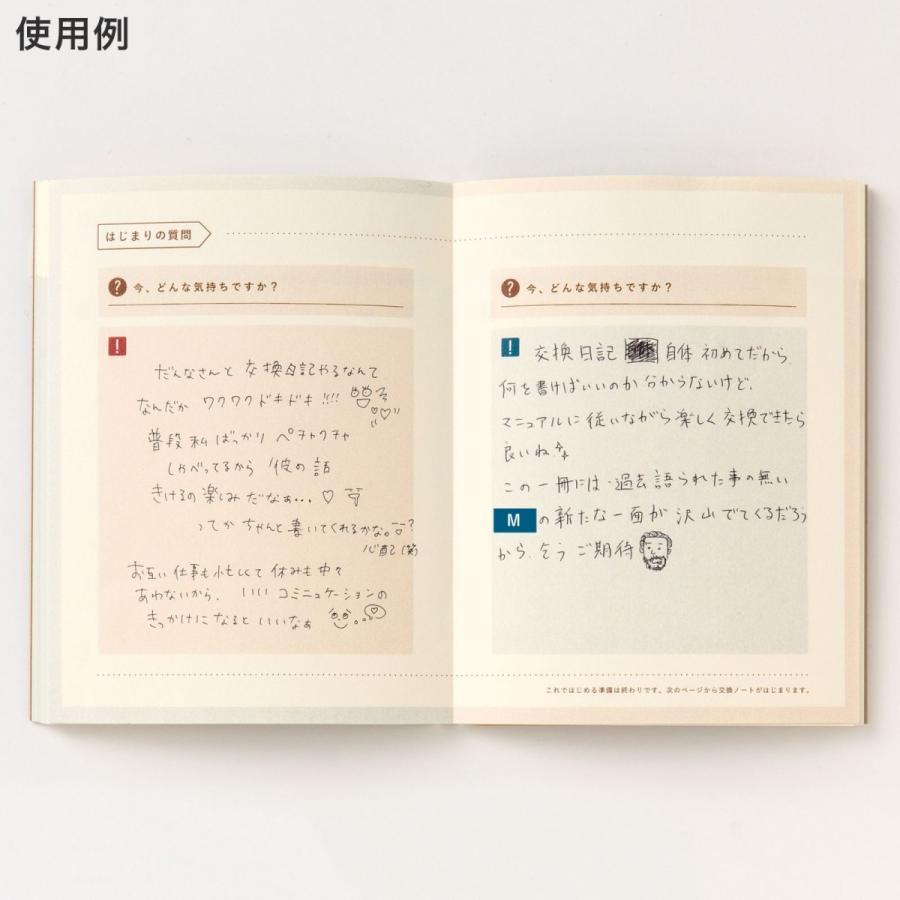 使用例
はじまりの質問
? 今、どんな気持ちですか?
!
だんなさんと 交換日記やるなんて
なんだか ワクワクドキドキ!!!!
普段 私ばっかり ペチャクチャ
しゃべってるから 彼の話
きけるの楽しみだなぁ...♡
ってか ちゃんと書いてくれるかな。?
心配(笑)
お互い仕事も忙しくて 休みも中々
あわないから、いいコミニュケーションの
きっかけになるといいなぁ
? 今、どんな気持ちですか?
!
交換日記 自体 初めてだから
何を書けばいいのか 分からないけど、
マニュアルに従いながら楽しく交換できたら
良いね
この一冊には 過去語られた事の無い
M の新たな一面が 沢山でてくるだろう
から、そう ご期待
これではじめる準備は終わりです。次のページから交換ノートがはじまります。